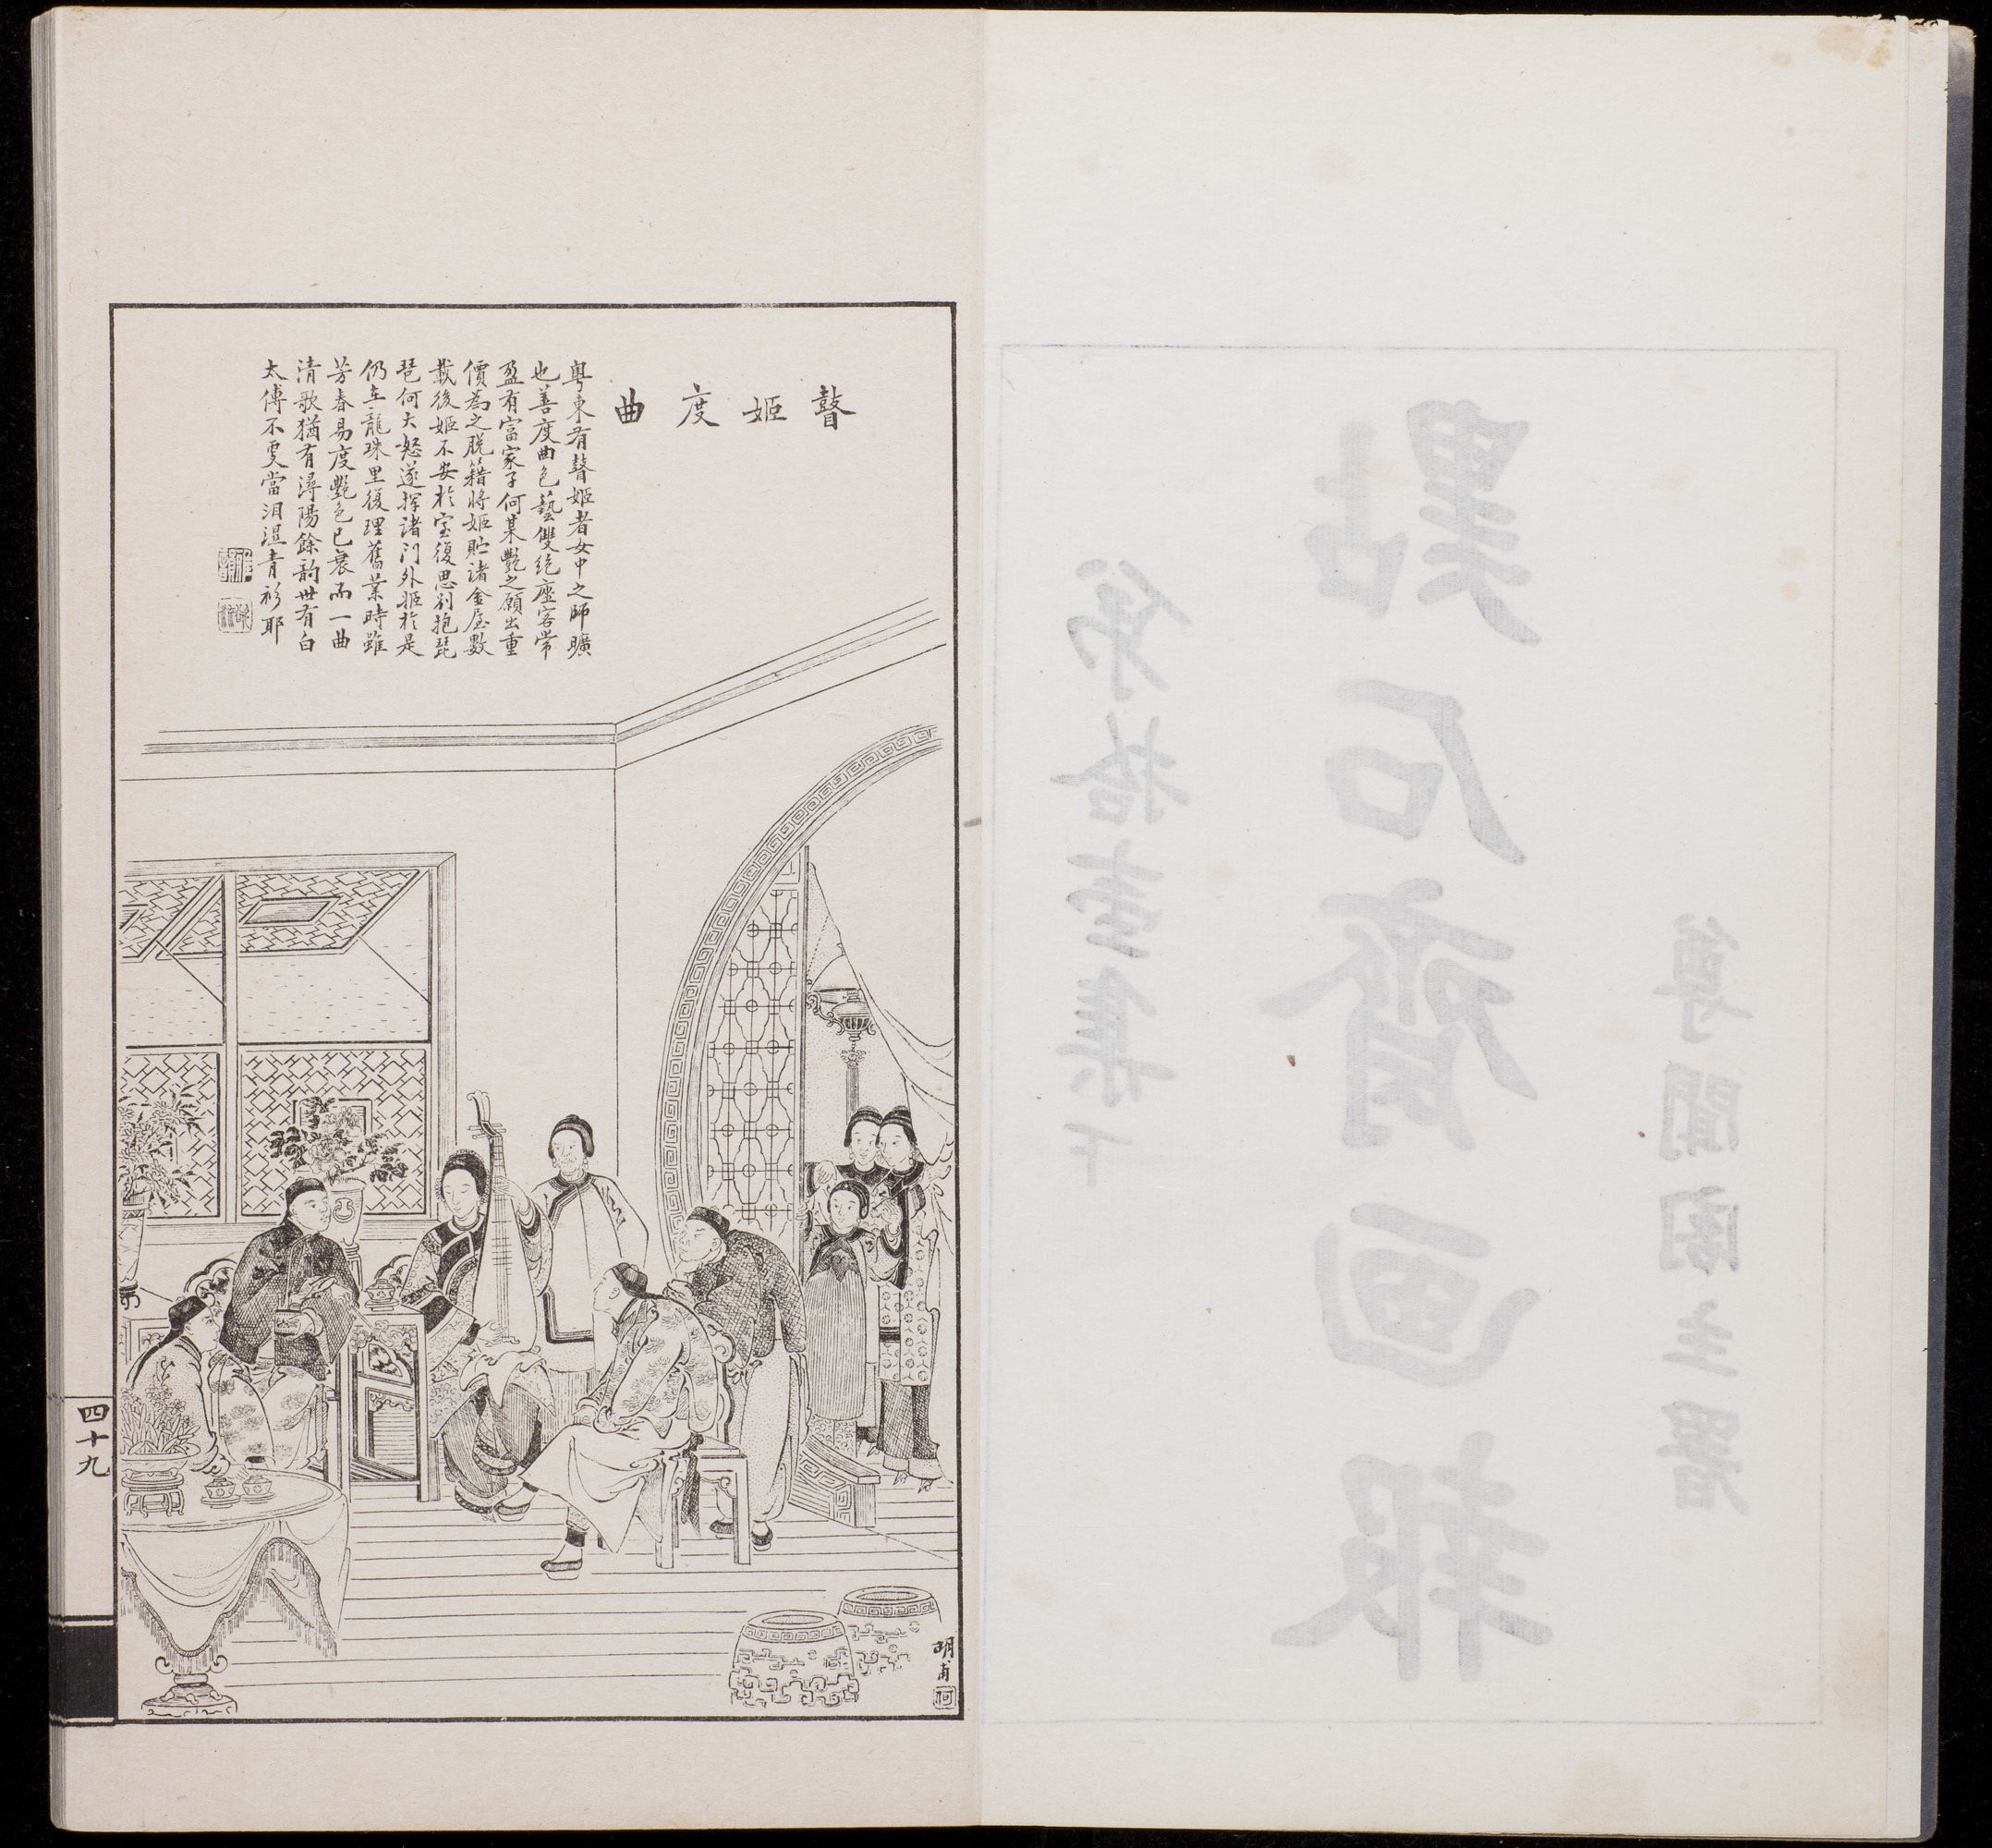 第拾壹集下
點石齋画報
尊聞閣主署
瞽姬度曲
粵東有瞽姬者女中之師曠
也善度曲色藝雙絕座客常
盈有富家子何某艷之願出重
價為之脫籍將姬貯諸金屋數
載後姬不安於室復思別抱琵
琶何大怒遂揮諸門外姬於是
仍在龍珠里復理舊業時雖
芳春易度艷色已衰而一曲
清歌猶有潯陽餘韵世有白
太傅不更當泪濕青衫耶
明甫
四十九